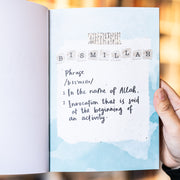 BISMILLAH
Phrase
/bɪsmɪlə/
1 In the name of Allah.
2 Invocation that is said
at the beginning of
an activity.